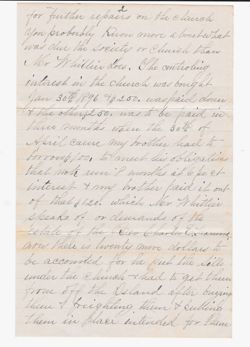 2
for further repairs on the church
You probably know more about what
was due the Society or Church than
Mr Whittier does. The controling
interest in the Church was bought
Jan 30th 1896 $200. was paid down
& the other 50. was to be paid in
three months when the 30th of
April came my brother had to
borrow 100. to meet his obligations
that note run months at 6 pr ct
interest & my brother paid it out
of that $120. which Mr Whittier
speaks of or demands of the
estate of the Rev Charles
now there is twenty more dollars to
be accounted for he put the sills
under the Church & had to get them
from off the Island after buying
them & freighting them & putting
them in place intended for them